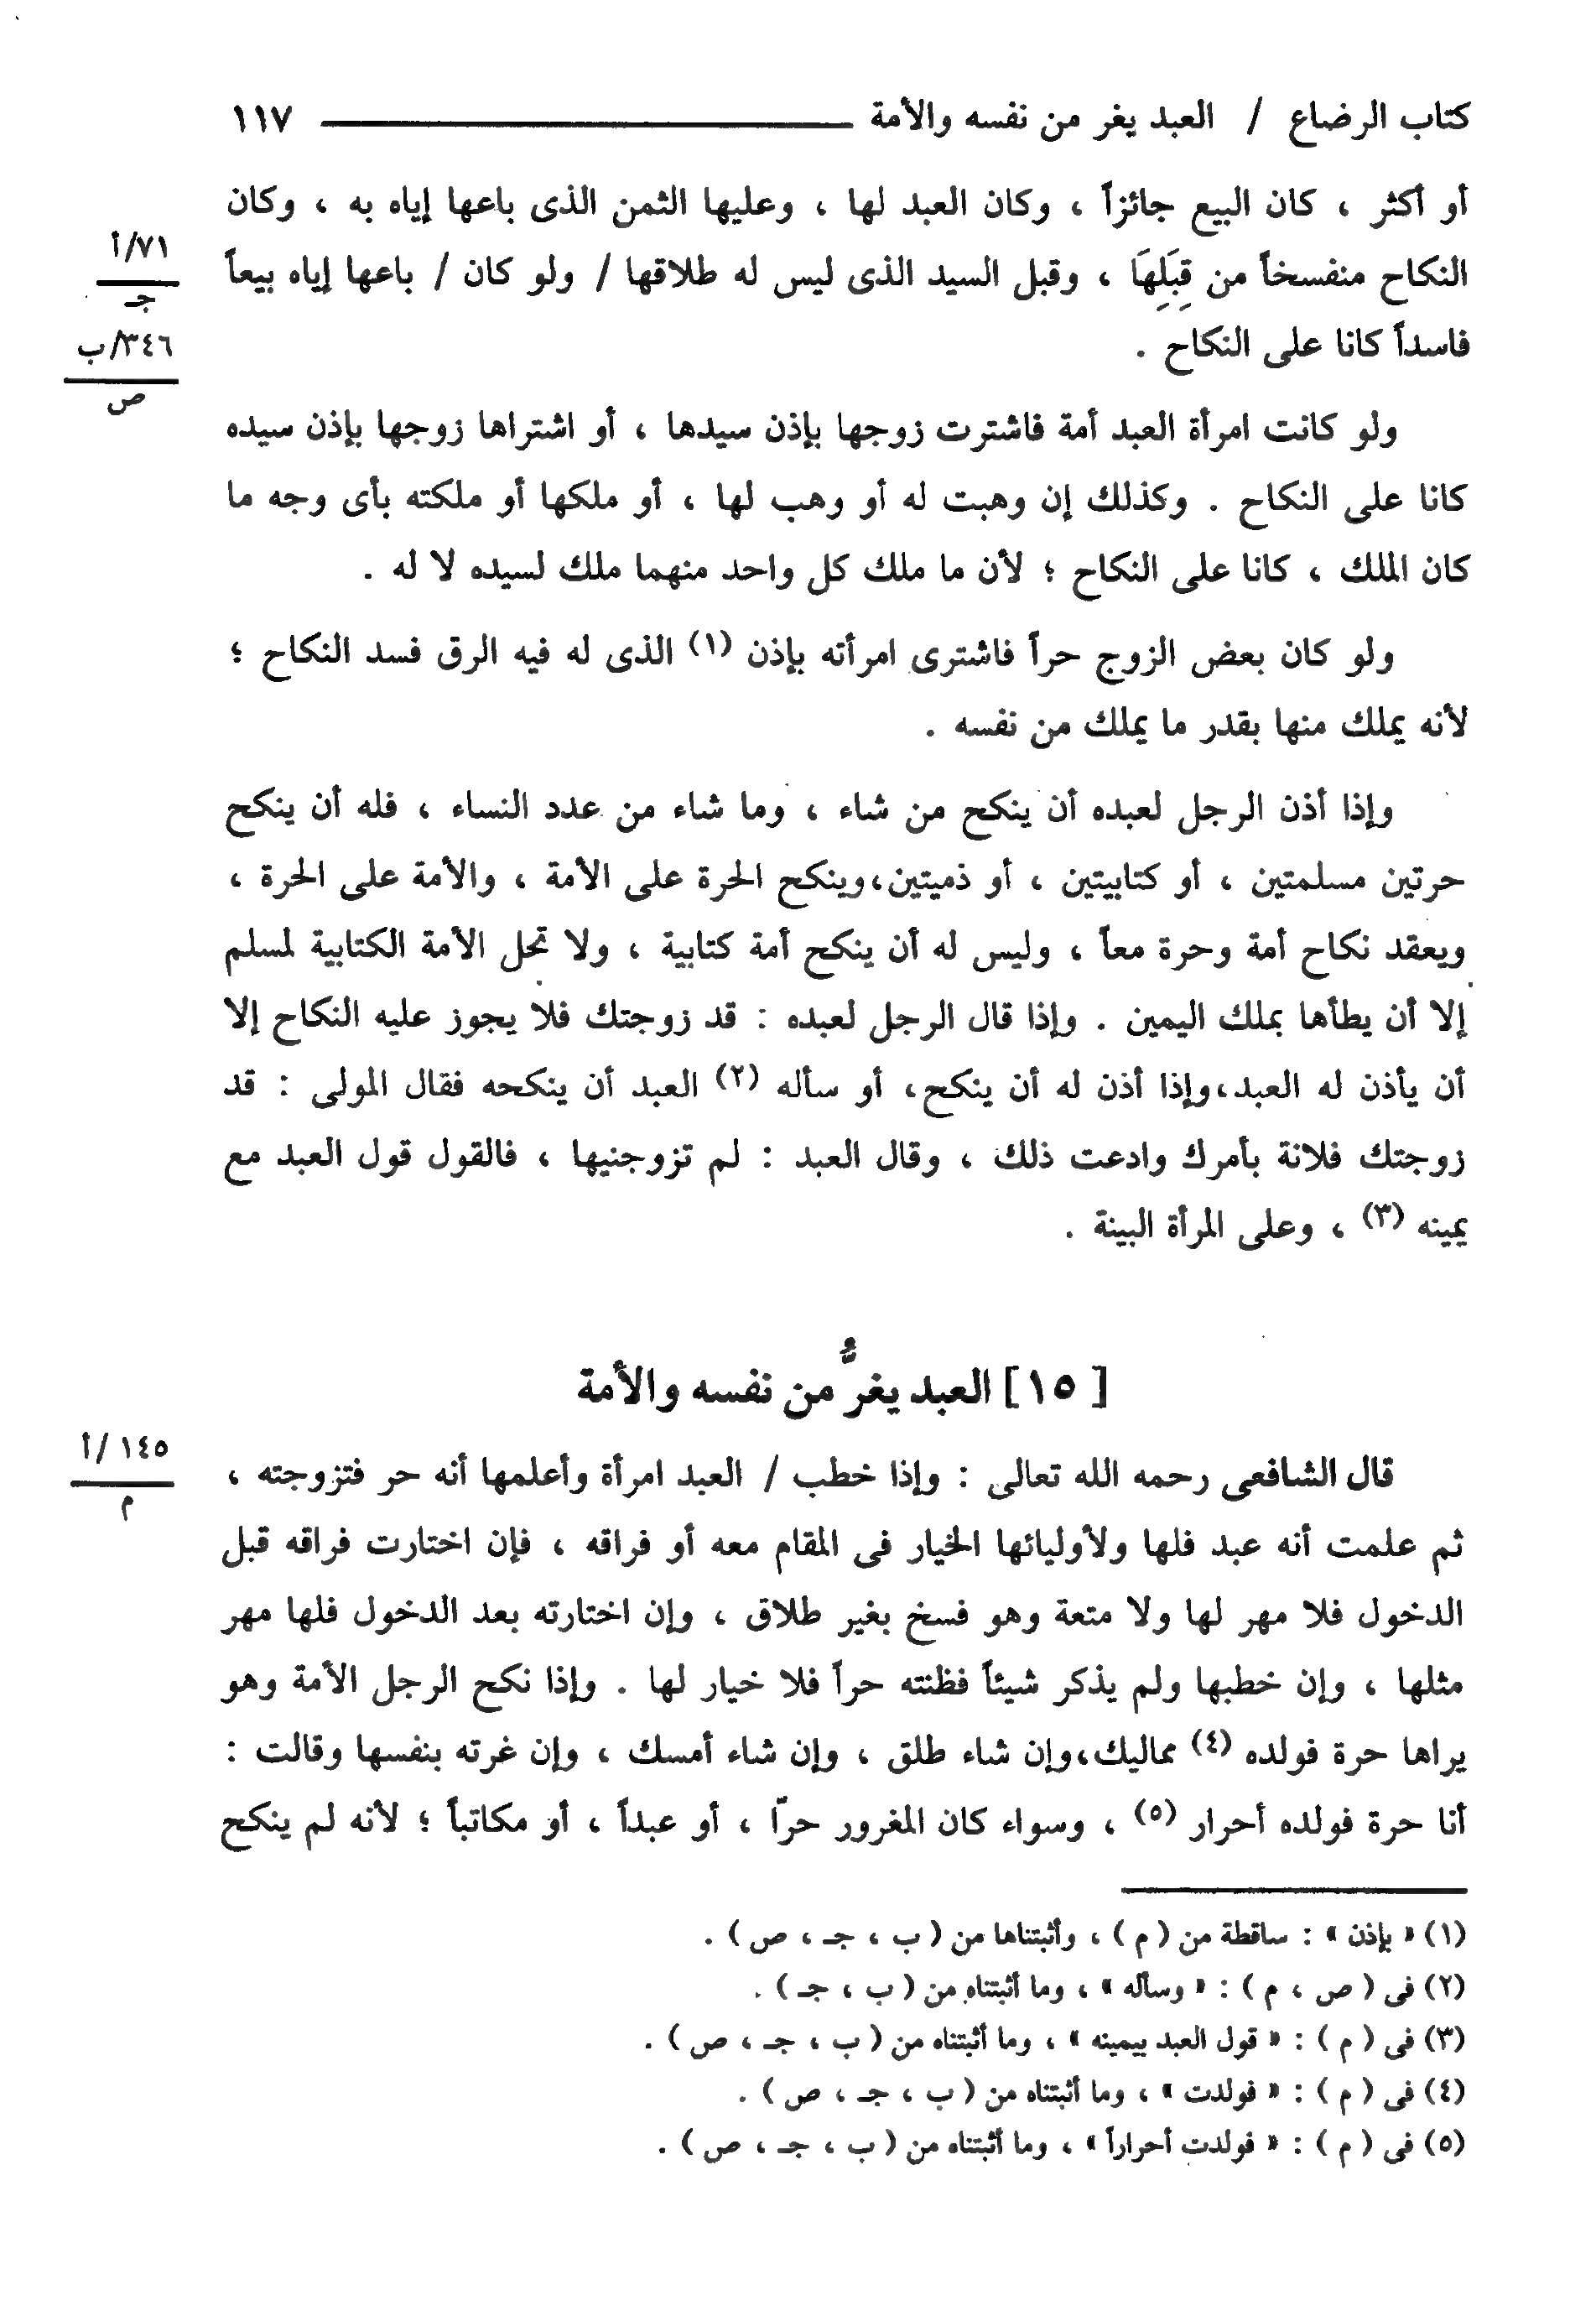 كتاب الرضاع / العبد يغر من نفسه والأمة ١١٧
أو أكثر ، كان البيع جائزاً ، وكان العبد لها ، وعليها الثمن الذى باعها إياه به ، وكان
النكاح منفسخاً من قِبَلِهَا ، وقبل السيد الذى ليس له طلاقها / ولو كان / باعها إياه بيعاً
٧١/أ
جـ
٣٤٦/ب
ص
فاسداً كانا على النكاح .
ولو كانت امرأة العبد أمة فاشترت زوجها بإذن سيدها ، أو اشتراها زوجها بإذن سيده
كانا على النكاح . وكذلك إن وهبت له أو وهب لها ، أو ملكها أو ملكته بأى وجه ما
كان الملك ، كانا على النكاح ؛ لأن ما ملك كل واحد منهما ملك لسيده لا له .
ولو كان بعض الزوج حراً فاشترى امرأته بإذن (١) الذى له فيه الرق فسد النكاح ؛
لأنه يملك منها بقدر ما يملك من نفسه .
وإذا أذن الرجل لعبده أن ينكح من شاء ، وما شاء من عدد النساء ، فله أن ينكح
حرتين مسلمتين ، أو كتابيتين ، أو ذميتين،وينكح الحرة على الأمة ، والأمة على الحرة ،
ويعقد نكاح أمة وحرة معاً ، وليس له أن ينكح أمة كتابية ، ولا تحل الأمة الكتابية لمسلم
إلا أن يطأها بملك اليمين . وإذا قال الرجل لعبده : قد زوجتك فلا يجوز عليه النكاح إلا
أن يأذن له العبد،وإذا أذن له أن ينكح، أو سأله (٢) العبد أن ينكحه فقال المولى : قد
زوجتك فلانة بأمرك وادعت ذلك ، وقال العبد : لم تزوجنيها ، فالقول قول العبد مع
يمينه (٣) ، وعلى المرأة البينة .
[ ١٥] العبد يغرُّ من نفسه والأمة
قال الشافعى رحمه الله تعالى : وإذا خطب / العبد امرأة وأعلمها أنه حر فتزوجته ،
١٤٥ /أ
م
ثم علمت أنه عبد فلها ولأوليائها الخيار فى المقام معه أو فراقه ، فإن اختارت فراقه قبل
الدخول فلا مهر لها ولا متعة وهو فسخ بغير طلاق ، وإن اختارته بعد الدخول فلها مهر
مثلها ، وإن خطبها ولم يذكر شيئاً فظنته حراً فلا خيار لها . وإذا نكح الرجل الأمة وهو
يراها حرة فولده (٤) مماليك،وإن شاء طلق ، وإن شاء أمسك ، وإن غرته بنفسها وقالت :
أنا حرة فولده أحرار (٥) ، وسواء كان المغرور حرّا ، أو عبداً ، أو مكاتباً ؛ لأنه لم ينكح
(١) « بإذن » : ساقطة من ( م ) ، وأثبتناها من ( ب ، جـ ، ص ) .
(٢) فى ( ص ، م ) : « وسأله » ، وما أثبتناه من ( ب ، جـ ) .
(٣) فى ( م ) : « قول العبد بيمينه » ، وما أثبتناه من ( ب ، جـ ، ص ) .
(٤) فى ( م ) : « فولدت » ، وما أثبتناه من ( ب ، جـ ، ص ) .
(٥) فى ( م ) : « فولدت أحراراً » ، وما أثبتناه من ( ب ، جـ ، ص ) .